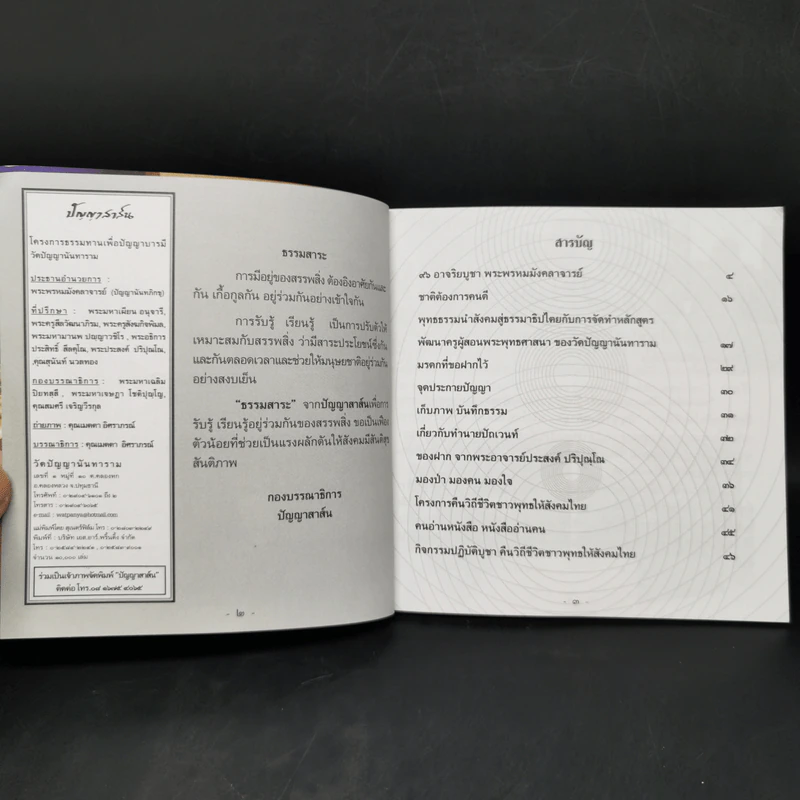 ปัญญาสาส์น
โครงการธรรมทานเพื่อปัญญาบารมี
วัดปัญญานันทาราม
ประธานอำนวยการ :
พระพรหมมังคลาจารย์ (ปัญญานันทภิกขุ)
ที่ปรึกษา : พระมหาเผียน อนุจารี,
พระครูสีลวัฒนาภิรม, พระครูสังฆกิจพิมล,
พระมหามานพ ปญฺญาวชิโร, พระอธิการ
ประสิทธิ์ สีลคุโณ, พระประสงค์ ปริปุณฺโณ,
คุณสุนันท์ นวลทอง
กองบรรณาธิการ : พระมหาเฉลิม
ปิยทสฺสี, พระมหาเจษฎา โชติปุญฺโญ,
คุณสมศรี เจริญวีรกุล
ถ่ายภาพ : คุณเมตตา อิศราภรณ์
บรรณาธิการ : คุณเมตตา อิศราภรณ์
วัดปัญญานันทาราม
เลขที่ ๑ หมู่ที่ ๑๐ ต.คลองหก
อ.คลองหลวง จ.ปทุมธานี
โทรศัพท์ :
โทรสาร :
e-mail :
แม่พิมพ์โดย สุเนตร์ฟิล์ม โทร :
พิมพ์ที่ : บริษัท เอส.อาร์.พริ้นติ้ง จำกัด
โทร :
จำนวน ๑๐,๐๐๐ เล่ม
ร่วมเป็นเจ้าภาพจัดพิมพ์ "ปัญญาสาส์น"
ติดต่อ โทร.๐๘ ๑๖๗๕ ๔๐๖๕
ธรรมสาระ
การมีอยู่ของสรรพสิ่ง ต้องอิงอาศัยกันและ
กัน เกื้อกูลกัน อยู่ร่วมกันอย่างเข้าใจกัน
การรับรู้ เรียนรู้ เป็นการปรับตัวให้
เหมาะสมกับสรรพสิ่ง ว่ามีสาระประโยชน์ซึ่งกัน
และกันตลอดเวลาและช่วยให้มนุษยชาติอยู่ร่วมกัน
อย่างสงบเย็น
"ธรรมสาระ" จากปัญญาสาส์นเพื่อการ
รับรู้ เรียนรู้อยู่ร่วมกันของสรรพสิ่ง ขอเป็นเฟือง
ตัวน้อยที่ช่วยเป็นแรงผลักดันให้สังคมมีสันติสุข
สันติภาพ
กองบรรณาธิการ
ปัญญาสาส์น
- ๒ -
สารบัญ
๙๖ อาจริยบูชา พระพรหมมังคลาจารย์ ๔
ชาติต้องการคนดี ๑๖
พุทธธรรมนำสังคมสู่ธรรมาธิปไตยกับการจัดทำหลักสูตร
พัฒนาครูผู้สอนพระพุทธศาสนา ของวัดปัญญานันทาราม ๑๗
มรดกที่ขอฝากไว้ ๒๙
จุดประกายปัญญา ๓๐
เก็บภาพ บันทึกธรรม ๓๑
เกี่ยวกับทำนายปัถเวทน์ ๓๒
ของฝาก จากพระอาจารย์ประสงค์ ปริปุณฺโณ ๓๔
มองป่า มองคน มองใจ ๓๖
โครงการคืนวิถีชีวิตชาวพุทธให้สังคมไทย ๔๑
คนอ่านหนังสือ หนังสืออ่านคน ๔๕
กิจกรรมปฏิบัติบูชา คืนวิถีชีวิตชาวพุทธให้สังคมไทย ๔๖
- ๓ -